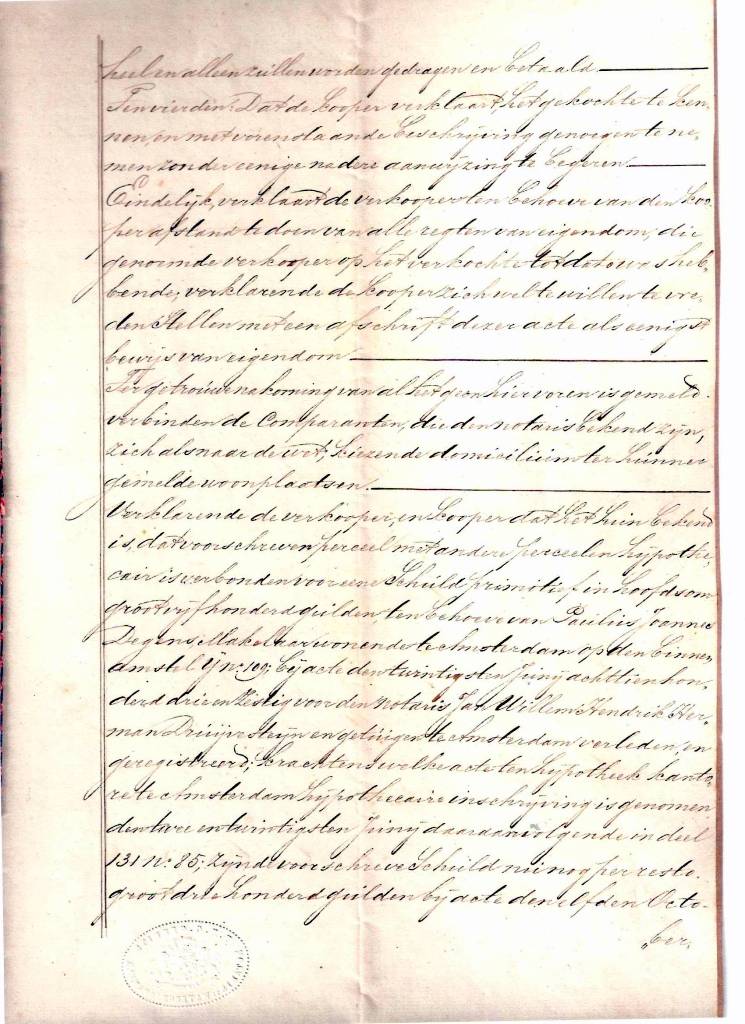 heel en alleen zullen worden gedragen en betaald.
Ten vierden: Dat de kooper verklaart, het gekochte te ken-
nen, en met vorenstaande beschrijving genoegen te ne-
men zonder eenige nadere aanwijzing te begeren.
Eindelijk, verklaard de verkooper ten behoeve van den koo-
per afstand te doen van alle regten van eigendom, die
genoemde verkooper op het verkochte tot dato was heb-
bende; verklarende de kooper zich wel te willen te vre-
den stellen met een afschrift dezer acte als eenigst
bewijs van eigendom
Ter getrouwe nakoming van al hetgeen hiervoren is gemeld.
verbinden de Comparanten, die den notaris bekend zijn,
zich als naar de wet; kiezende domicilium ter hunner
gemelde woonplaatsen.
Verklarende de verkooper, en kooper dat het hun bekend
is, dat voorschreven perceel met andere perceelen hypothe-
cair is verbonden voor eene schuld primitief in hoofdsom
groot vijfhonderd gulden, ten behoeve van Paulus Joannes
Degens Makelaar wonende te Amsterdam op den Binnen
Amstel no: 109; bij acte den twintigsten Junij achttienhon-
derd drie en zestig voor den notaris Willem Hendrik Her-
man Druijvesteijn en getuigen te Amsterdam verleden, en
geregistreerd; krachtens welke acte ten hypotheek kanto-
re te Amsterdam hypothecaire inschrijving is genomen
den twee en twintigsten Junij daaraanvolgende in deel
131 no: 85; zijnde voorschreve schuld nu nog per resto
groot drie honderd gulden bij acte den elfden Octo-
„ber,